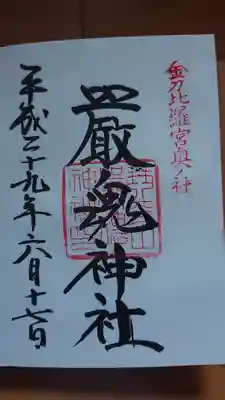 金刀比羅宮奥ノ社
厳魂神社
平成二十九年六月十七日